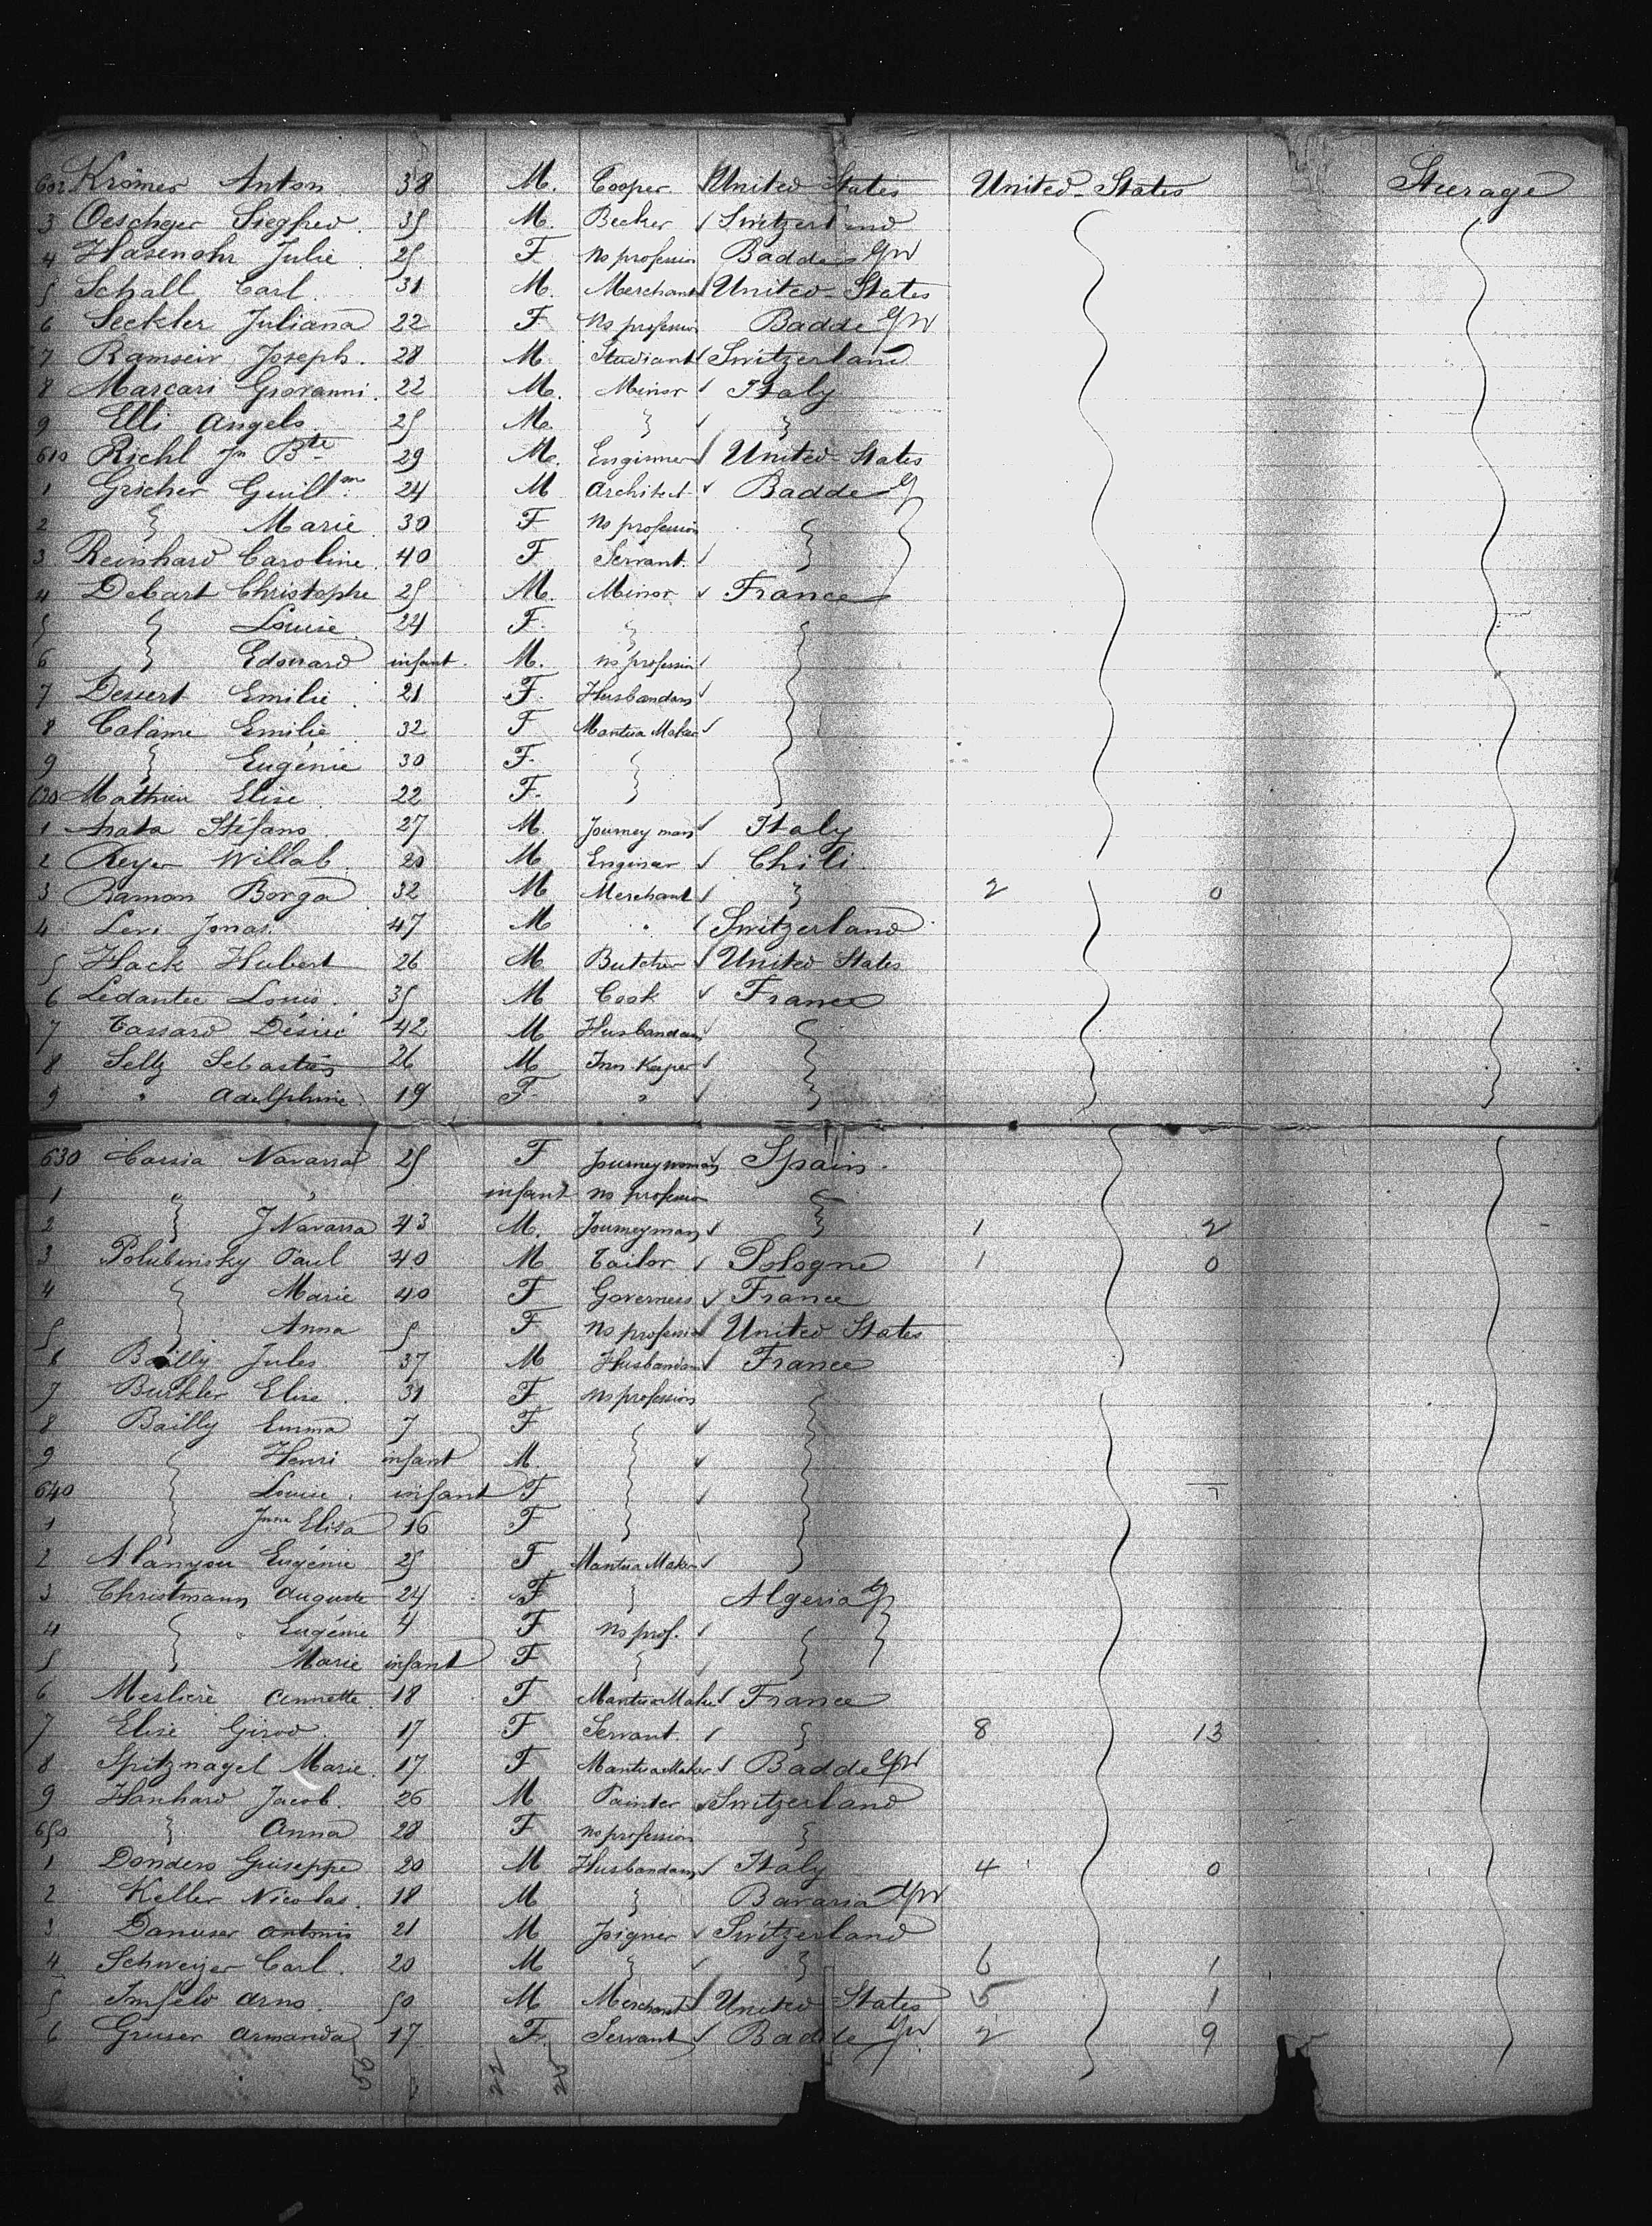 602 Krömer Anton 38 M. Cooper United States United States Steerage
3 Oescheger Siegfred 35 M. Becker Switzerland
4 Hasenohr Julie 25 F no profession Badde
5 Schall Carl 31 M. Merchant United States
6 Seckler Juliana 22 F no profession Badde
7 Ramseir Joseph. 28 M. Studiant Switzerland
8 Marcari Giovanni. 22 M. Minor Italy
9 Elli Angelo 25 M. "
610 Richl Jn Bte 29 M. Enginner United States
1 Grscher Guillme 24 M Architect Badde
2 " Marie 30 F no profession
3 Reinhard Caroline. 40 F Servant. "
4 Debart Christophe 25 M. Minor France
5 " Louise 24 F. "
6 " Edouard infant. M. no profession
7 Dessert Emilie 21 F. Husbandam
8 Calame Emilie 32 F Mantua Maker
9 " Eugénie 30 F. "
620 Mathieu Elise 22 F.
1 Stefano 27 M. Journey man Italy
2 Reyer Willab 20 M Enginear Chili
3 Ramon Borga 32 M Merchant " 2 0
4 Levi Jonas. 47 M " Switzerland
5 Hack Hubert 26 M Butcher United States
6 Ledantec Louis. 35 M Cook France
7 Tassard Désiré 42 M Husbandam
8 Selly Sebastian 26 M Inn Keeper
9 " Adelphine 19 F. "
630 Cassia Navarra 25 F Journeywoman Spain.
1 " " infant no profession
2 " J Navarra 43 M. Journeyman " 1 2
3 Polubinsky Paul 40 M Tailor Pologne 1 0
4 " Marie 40 F Governess France
5 " Anna 5 F no profession United States
6 Bailly Jules 37 M Husbandam France
7 Burkler Elise. 31 F no profession
8 Bailly Emma 7 F
9 " Henri infant M.
640 " Louise. infant F
1 " Jnne Elisa 16 F
2 Alanyou Eugénie 25 F Mantua Maker
3 Christmann Auguste 24 F " Algeria
4 " Eugénie 4 F no prof.
5 " Marie infant F "
6 Meslière Annette. 18 F Mantua Maker France
7 Elise Girod 17 F Servant. " 8 13
8 Spitznagel Marie. 17 F Mantua Maker Badde
9 Hanhard Jacob. 26 M Painter Switzerland
650 " Anna 28 F no profession "
1 Dondero Guiseppe 20 M Husbandam Italy 4 0
2 Keller Nicolas. 18 M " Bavaria
3 Danuser Antonio 21 M Joigner Switzerland
4 Schweizer Carl. 20 M " " 6 1
5 Imfeld Arno. 50 M Merchant United States 5 1
6 Greiser Armanda 17 F. Servant Badde 2 9